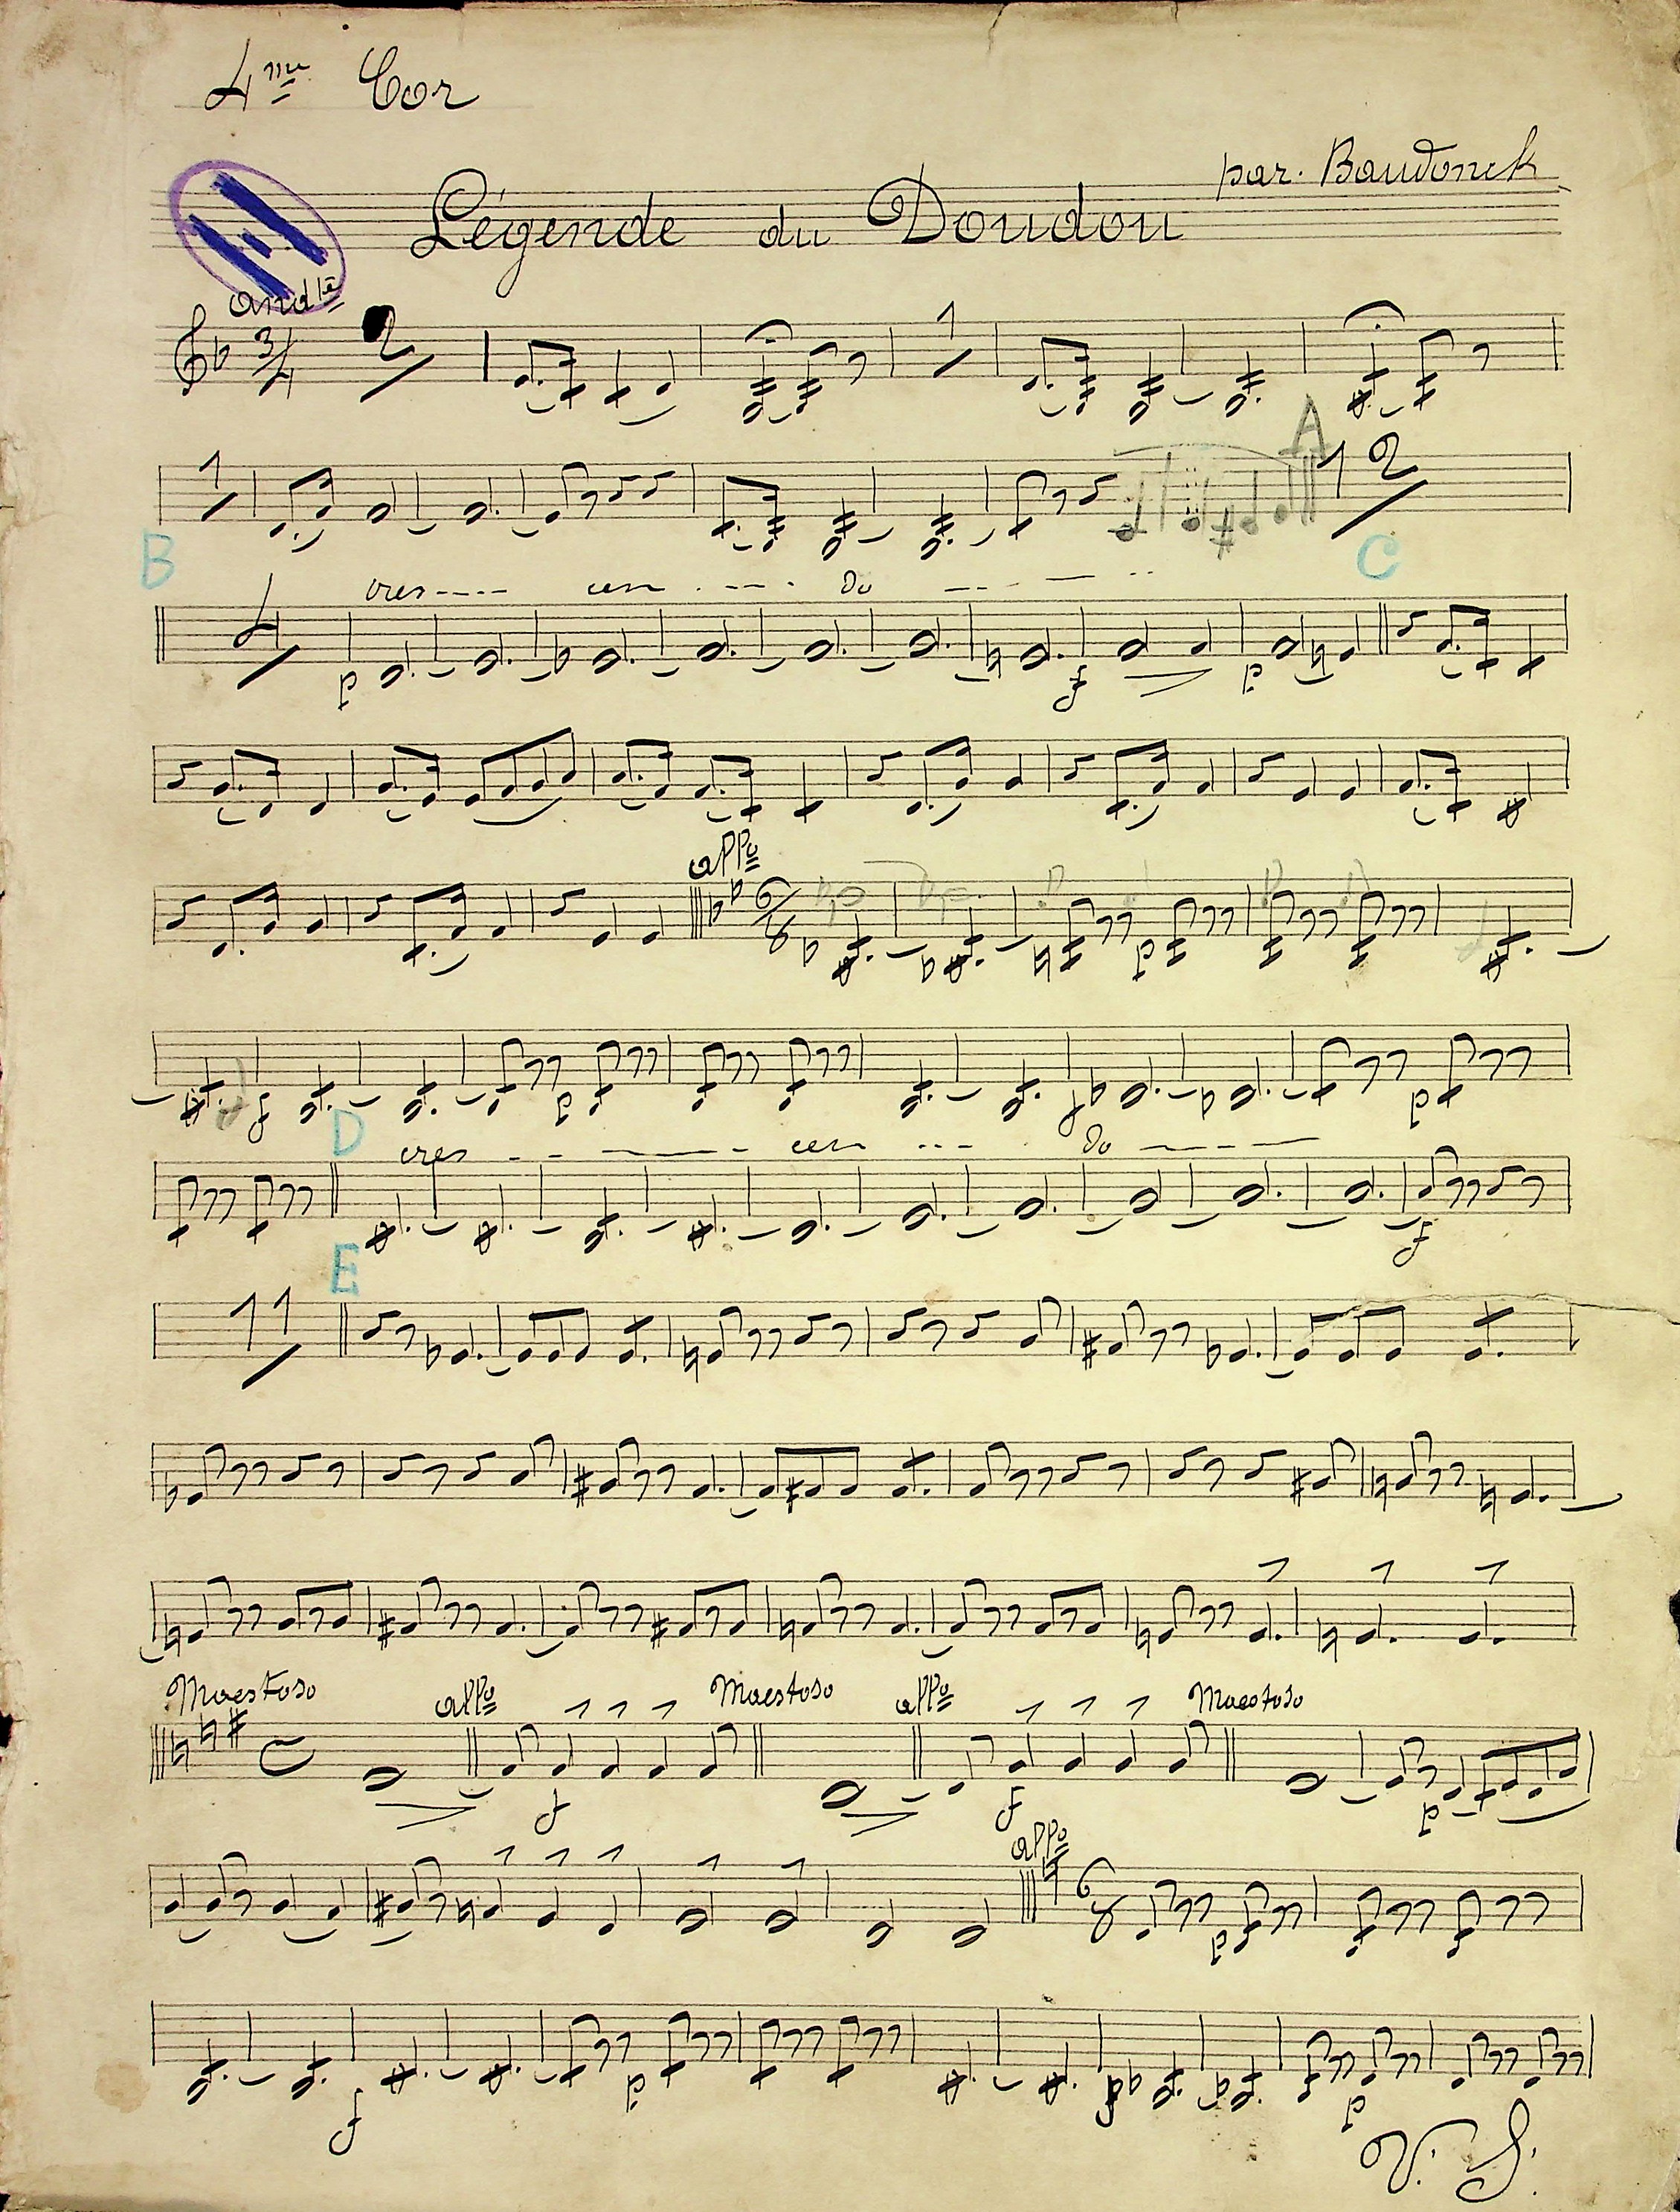 4me Cor
par. Baudonck
Légende du Doudou
Andte
3/4 2 1
1 A 1 2
B C
4 cres---- cen ---- do ----
p f p
allo
6/8
p
f p f p
D cres ---- cen --- do ----
f
E
11
Maestoso allo Maestoso allo Maestoso
C f f p
allo
6/8 p
f p f p
V. S.